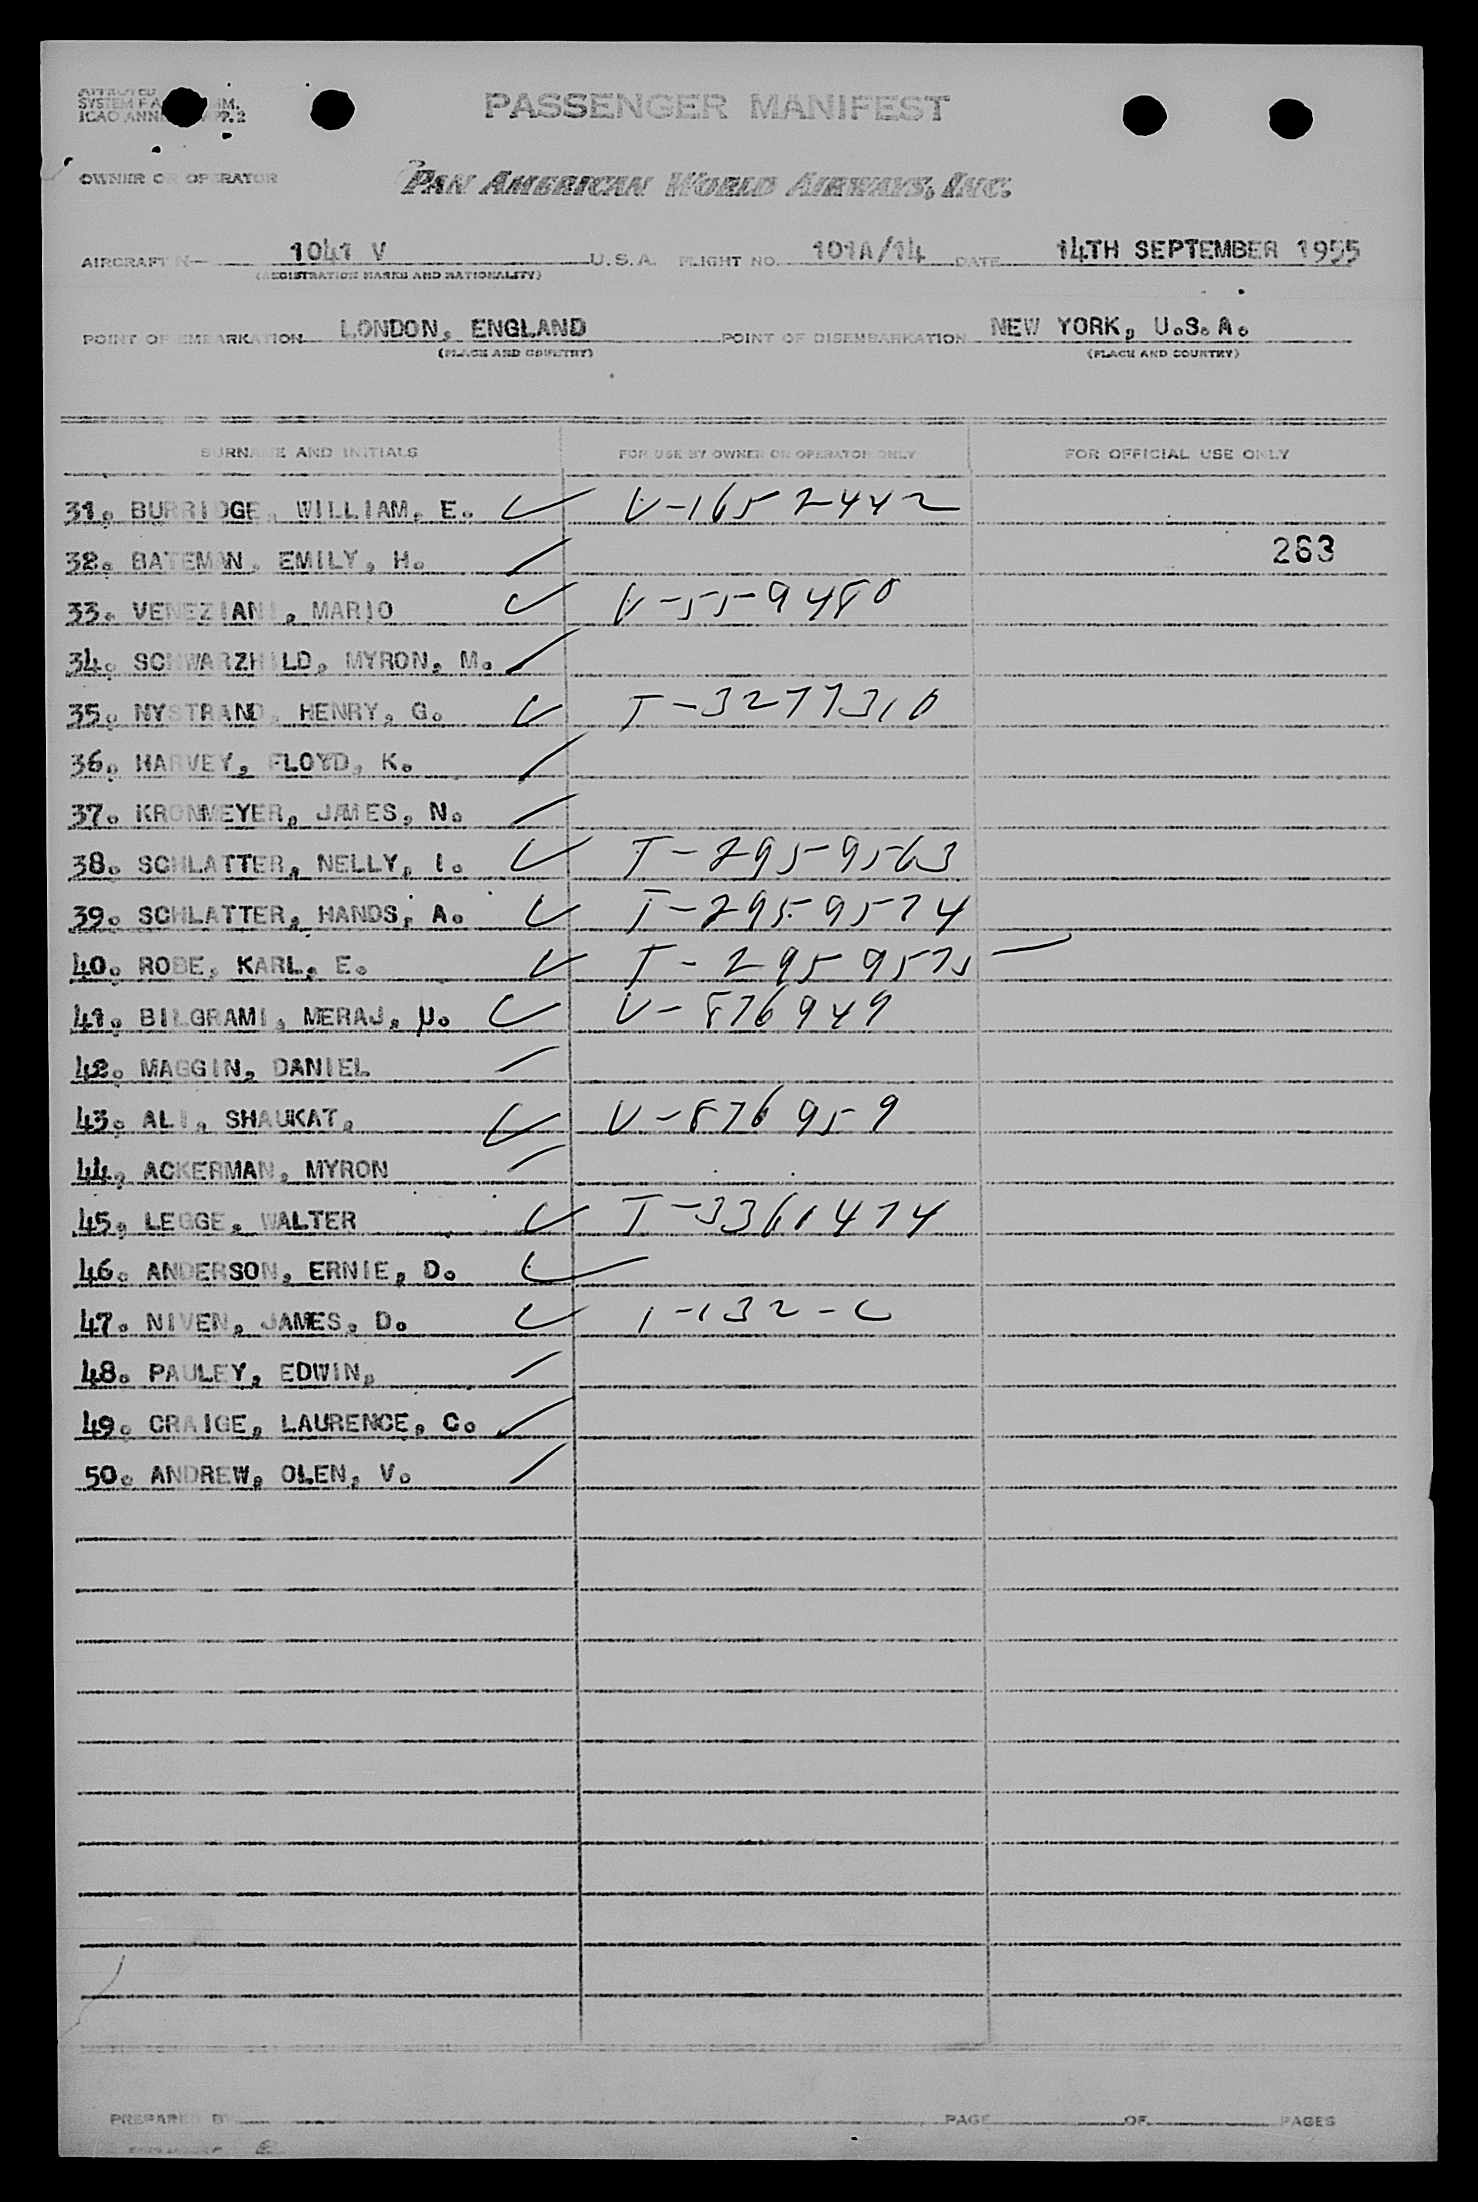 APPROVED
SYSTEM F
ICAO ANN
PASSENGER MANIFEST
OWNER OR OPERATOR PAN AMERICAN WORLD AIRWAYS, INC.
AIRCRAFT N- 1041 V U.S.A. FLIGHT NO. 101A/14 DATE 14TH SEPTEMBER 1955
(REGISTRATION MARKS AND NATIONALITY)
POINT OF EMBARKATION LONDON, ENGLAND POINT OF DISEMBARKATION NEW YORK, U.S.A.
(PLACE AND COUNTRY) (PLACE AND COUNTRY)
SURNAME AND INITIALS FOR USE BY OWNER OR OPERATOR ONLY FOR OFFICIAL USE ONLY
31. BURRIDGE, WILLIAM, E. V-1652442
32. BATEMAN, EMILY, H. 263
33. VENEZIANI, MARIO V-559480
34. SCHWARZHILD, MYRON, M.
35. NYSTRAND, HENRY, G. T-3277310
36. HARVEY, FLOYD, K.
37. KRONMEYER, JAMES, N.
38. SCHLATTER, NELLY, I. T-2959563
39. SCHLATTER, HANDS, A. T-2959574
40. ROBE, KARL, E. T-2959575
41. BILGRAMI, MERAJ, U. V-876949
42. MAGGIN, DANIEL
43. ALI, SHAUKAT, V-876959
44. ACKERMAN, MYRON
45. LEGGE, WALTER T-3361474
46. ANDERSON, ERNIE, D.
47. NIVEN, JAMES, D. 1-132-C
48. PAULEY, EDWIN,
49. CRAIGE, LAURENCE, C.
50. ANDREW, OLEN, V.
PREPARED BY PAGE OF PAGES